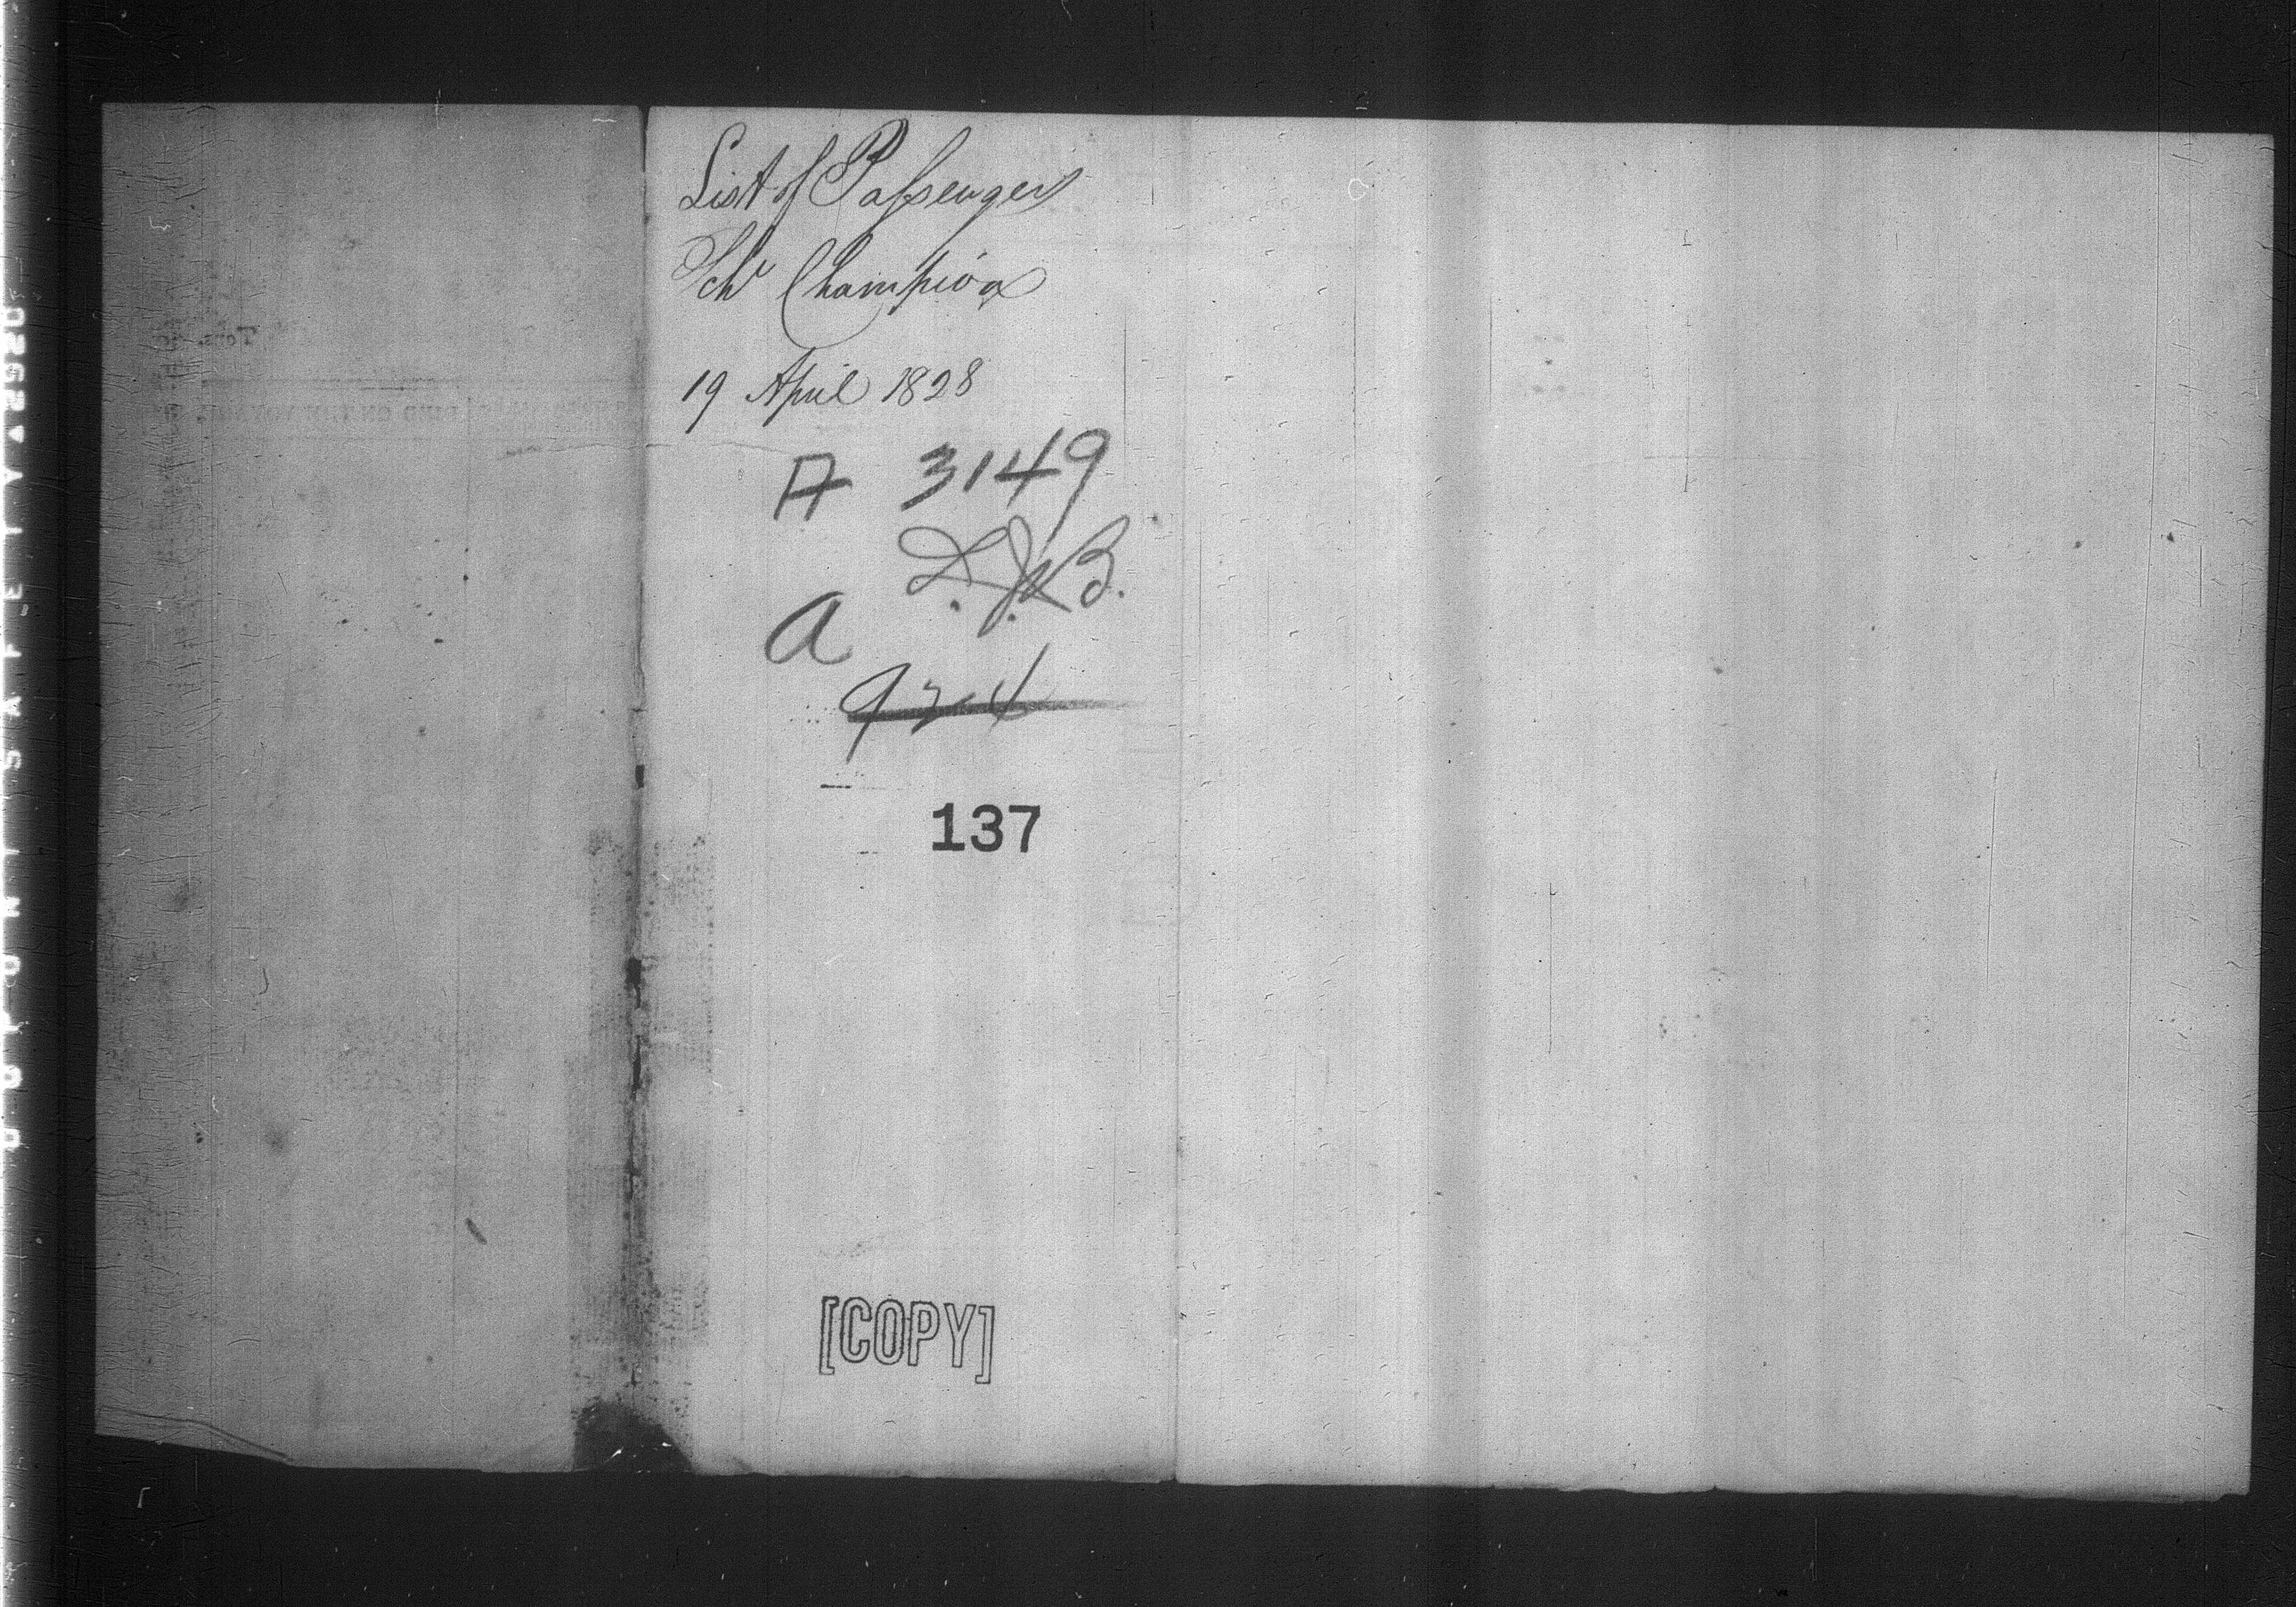 List of Passengers
Schr Champion
19 April 1828
A 3149
A
924
137
[COPY]